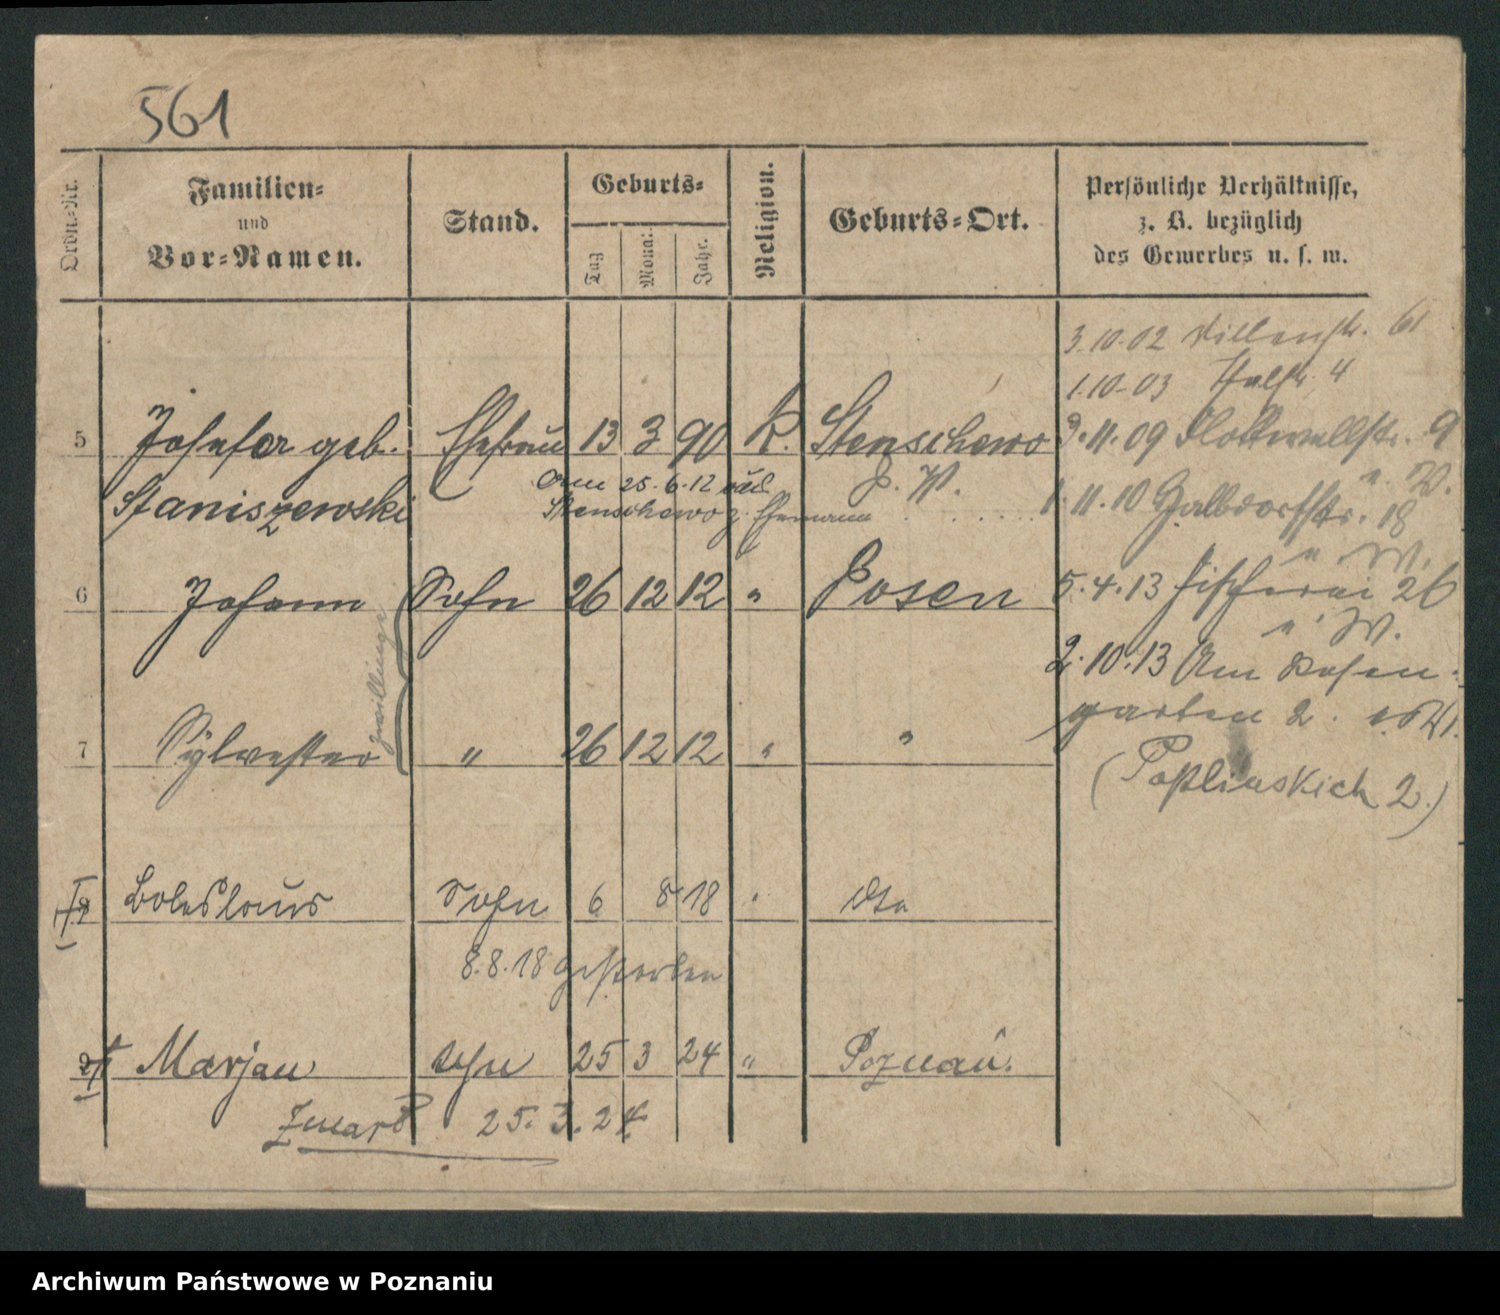 561
Ordn.-Nr.
Familien-
und
Vor-Namen.
Stand.
Geburts-
Tag
Monat
Jahr.
Religion.
Geburts-Ort.
Persönliche Verhältnisse,
z. B. bezüglich
des Gewerbes u. s. w.
3.10.02 61
1.10.03 4
5 Josefa geb. Ehefrau 13 3 90 K. Stenschewo
Staniszewski P. W.
am 25.6.12 aus
Stenschewo z. Ehemann
9.11.09 Flottwellstr. 9
u. W.
1.11.10 18
u W.
6 Johann Sohn 26 12 12 " Posen
Zwillinge
5.4.13 Fischerei 26
u. W.
2.10.13 Am Rosen-
garten 2.
7 Sylvester " 26 12 12 " "
( 2.)
8 Boleslaus Sohn 6 8 18 " dto
8.8.18 gestorben
9 Marjan syn 25 3 24 " Poznań.
Zmarł 25.3.24
Archiwum Państwowe w Poznaniu